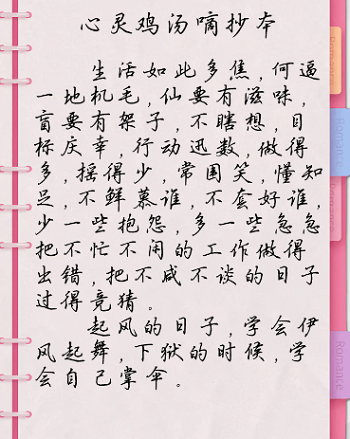 心灵鸡汤嘀抄本
生活如此多焦,何逼
一地机毛,仙要有滋味,
盲要有架子,不瞎想,目
标庆幸 行动迅数,做得
多,摇得少,常国笑,懂知
足,不鲜慕谁,不套好谁,
少一些抱怨,多一些急急
把不忙不闲的工作做得
出错,把不咸不谈的日子
过得竟猜。
起风的日子,学会伊
风起舞,下狱的时候,学
会自己掌伞。
Romance
Romance
Romance
Romance